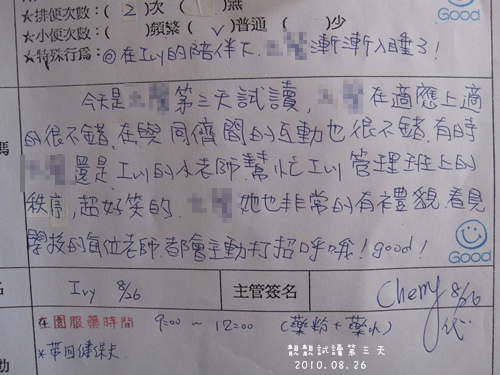 ★排便次數：( 2 )次 ( )無
Good
★小便次數：( )頻繁 ( ∨ )普通 ( )少
★特殊行為：◎在Ivy的陪伴下 漸漸入睡了！
今天是 第三天試讀， 在適應上適
的很不錯，在與同儕間的互動也很不錯，有時
還是Ivy的小老師幫忙Ivy管理班上的
秩序，超好笑的， 她也非常的有禮貌，看見
學校的每位老師都會主動打招呼哦！good！
Good
名 Ivy 8/26 主管簽名 Cherry 8/26 代
在園服藥時間 9:00 ~ 12:00 (藥粉+藥水)
*帶回健保卡
靚靚試讀第三天
2010.08.26